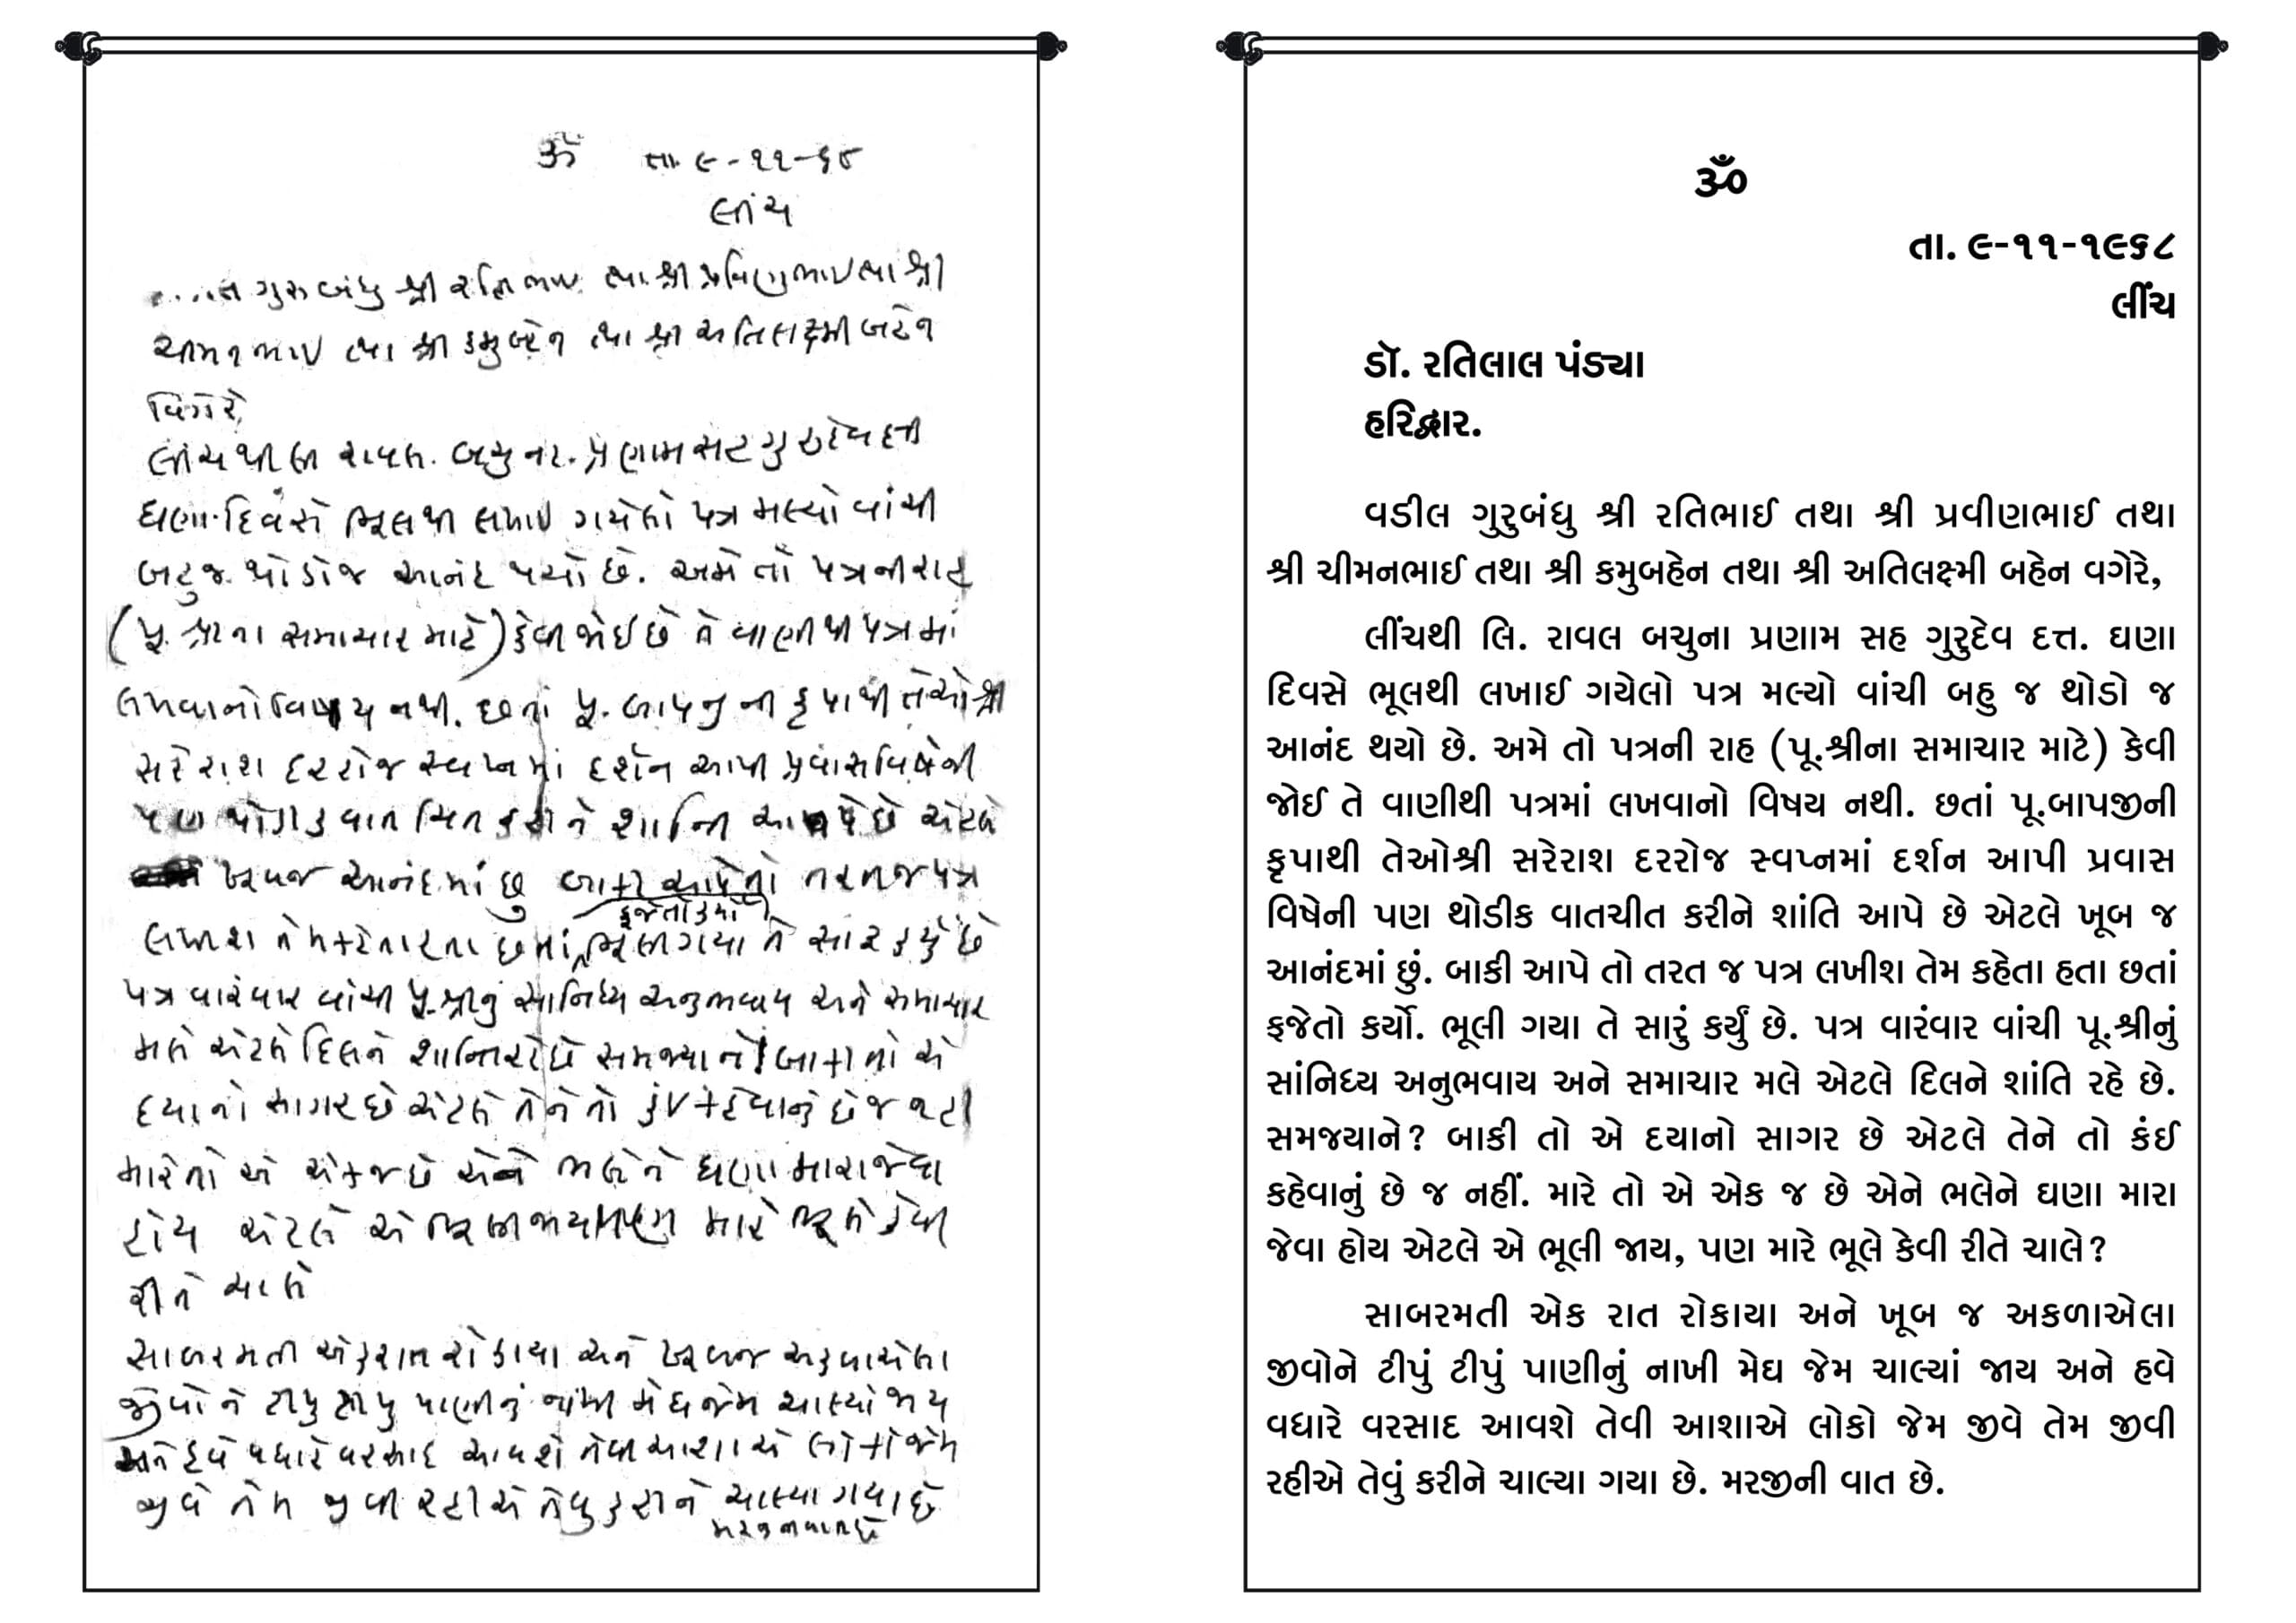 ૐ તા. ૯-૧૧-૬૮
લીંચ
ગુરુબંધુ શ્રી રતિભાઈ તથા શ્રી પ્રવિણભાઈ તથા શ્રી
ચીમનભાઈ તથા શ્રી કમુબહેન તથા શ્રી અતિલક્ષ્મી બહેન
વિગેરે,
લીંચથી લી રાવલ. બચુના. પ્રણામ સહ ગુરુદેવ દત્ત
ઘણા દિવસે ભૂલથી લખાઈ ગયેલો પત્ર મલ્યો વાંચી
બહુજ થોડોજ આનંદ થયો છે. અમે તો પત્રની રાહ
(પૂ. શ્રીના સમાચાર માટે) કેવી જોઈ છે તે વાણીથી પત્રમાં
લખવાનો વિષય નથી. છતાં પૂ. બાપજીની કૃપાથી તેઓશ્રી
સરેરાશ દરરોજ સ્વપ્નમાં દર્શન આપી પ્રવાસ વિષેની
પણ થોડીક વાતચિત કરીને શાન્તિ આપે છે એટલે
ખૂબજ આનંદમાં છુ બાકી આપેતો તરતજ પત્ર
ફજેતો કર્યો
લખીશ તેમ કહેતા હતા છતાં ભૂલી ગયા તે સારૂ કર્યું છે
પત્ર વારંવાર વાંચી પૂ.શ્રીનું સાનિધ્ય અનુભવાય અને સમાચાર
મલે એટલે દિલને શાન્તિ રહે છે સમજ્યાને! બાકી તો એ
દયાનો સાગર છે એટલે તેને તો કંઈ કહેવાનું છે જ નહી
મારેતો એ એકજ છે એને ભલેને ઘણા મારા જેવા
હોય એટલે એ ભૂલી જાય પણ મારે ભૂલે કેવી
રીતે ચાલે
સાબરમતી એકરાત રોકાયા અને ખૂબજ અકળાયેલા
જીવોને ટીપુ ટીપુ પાણીનું નાંખી મેઘ જેમ ચાલ્યો જાય
અને હવે વધારે વરસાદ આવશે તેવી આશાએ લોકો જેમ
જીવે તેમ જીવી રહીએ તેવુ કરીને ચાલ્યા ગયા છે
મરજીનીવાત છે
ૐ
તા. ૯-૧૧-૧૯૬૮
લીંચ
ડૉ. રતિલાલ પંડ્યા
હરિદ્વાર.
વડીલ ગુરુબંધુ શ્રી રતિભાઈ તથા શ્રી પ્રવીણભાઈ તથા
શ્રી ચીમનભાઈ તથા શ્રી કમુબહેન તથા શ્રી અતિલક્ષ્મી બહેન વગેરે,
લીંચથી લિ. રાવલ બચુના પ્રણામ સહ ગુરુદેવ દત્ત. ઘણા
દિવસે ભૂલથી લખાઈ ગયેલો પત્ર મલ્યો વાંચી બહુ જ થોડો જ
આનંદ થયો છે. અમે તો પત્રની રાહ (પૂ.શ્રીના સમાચાર માટે) કેવી
જોઈ તે વાણીથી પત્રમાં લખવાનો વિષય નથી. છતાં પૂ.બાપજીની
કૃપાથી તેઓશ્રી સરેરાશ દરરોજ સ્વપ્નમાં દર્શન આપી પ્રવાસ
વિષેની પણ થોડીક વાતચીત કરીને શાંતિ આપે છે એટલે ખૂબ જ
આનંદમાં છું. બાકી આપે તો તરત જ પત્ર લખીશ તેમ કહેતા હતા છતાં
ફજેતો કર્યો. ભૂલી ગયા તે સારું કર્યું છે. પત્ર વારંવાર વાંચી પૂ.શ્રીનું
સાંનિધ્ય અનુભવાય અને સમાચાર મલે એટલે દિલને શાંતિ રહે છે.
સમજયાને? બાકી તો એ દયાનો સાગર છે એટલે તેને તો કંઈ
કહેવાનું છે જ નહીં. મારે તો એ એક જ છે એને ભલેને ઘણા મારા
જેવા હોય એટલે એ ભૂલી જાય, પણ મારે ભૂલે કેવી રીતે ચાલે?
સાબરમતી એક રાત રોકાયા અને ખૂબ જ અકળાએલા
જીવોને ટીપું ટીપું પાણીનું નાખી મેઘ જેમ ચાલ્યાં જાય અને હવે
વધારે વરસાદ આવશે તેવી આશાએ લોકો જેમ જીવે તેમ જીવી
રહીએ તેવું કરીને ચાલ્યા ગયા છે. મરજીની વાત છે.